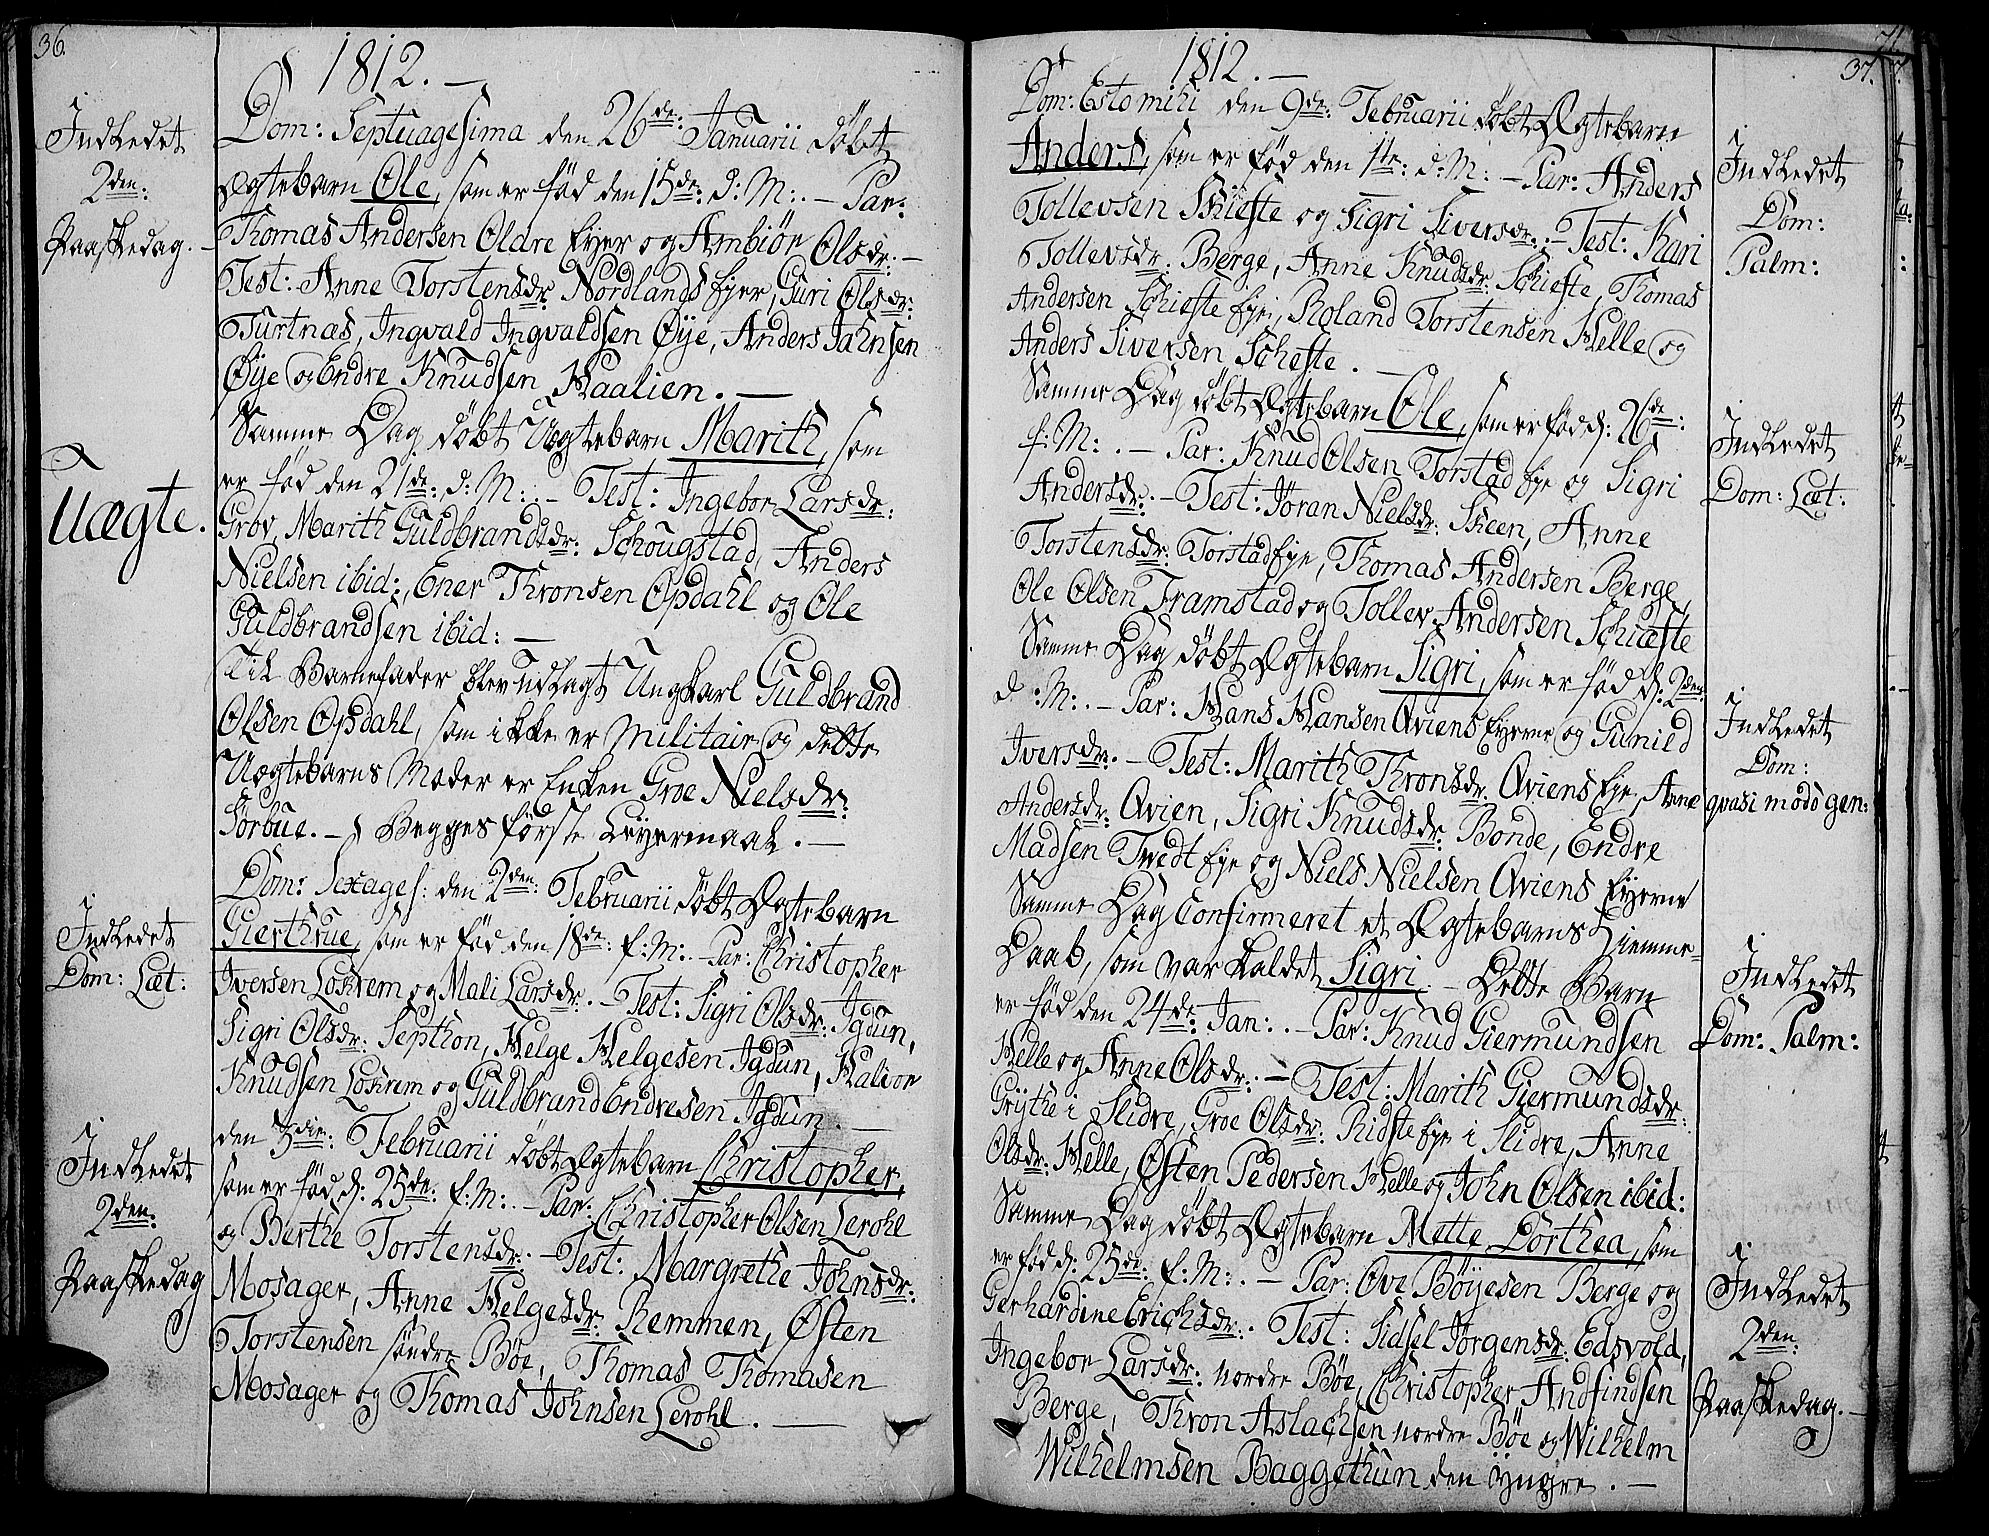 36.
1812. —
Indledet
2den:
Paaskedag. —
Dom: Septuagesima den 26de: Januarii døbt
Ægtebarn Ole, som er fød den 15de: d: M: — Par:
Thomas Andersen Oldre Eyer og Ambiør Olsdr: —
Test: Anne Torstensdr: Nordlands Eyer, Guri Olsdr:
Turtnæs, Ingvald Ingvaldsen Øye, Anders Jahnsen
Øye og Endre Knudsen Haalien. —
Uægte.
Samme Dag døbt Uægtebarn Marith, som
er fød den 21de: d: M: — Test: Ingebor Larsdr:
Grov, Marith Guldbrandsdr: Schougstad, Anders
Nielsen ibid:, Ener Thronsen Opdahl og Ole
Guldbrandsen ibid: —
Til Barnefader blev udlagt Ungkarl Guldbrand
Olsen Opdahl, som ikke er Militair og dette
Uægtebarns Moder er Enken Groe Nielsdr:
Sørbüe. — Begges første Leyermaal. —
Indledet
Dom: Læt:
Dom: Sexages: den 2den: Februarii døbt Ægtebarn
Gierthrue, som er fød den 18de: f: M: — Par: Christopher
Iversen Loskrem og Mali Larsdr: — Test: Sigri Olsdr: Igdun,
Sigri Olsdr: Septhon, Helge Helgesen Igdun, Halvor
Knudsen Loskrem og Guldbrand Endresen Igdun. —
Indledet
2den:
Paaskedag
den 5die: Februarii døbt Ægtebarn Christopher,
som er fød d: 25de: f: M: — Par: Christopher Olsen Lerohl
og Berthe Torstensdr: — Test: Margrethe Johnsdr:
Mosager, Anne Helgesdr: Remmen, Østen
Torstensen søndre Bøe, Thomas Thomasen
Mosager og Thomas Johnsen Lerohl. —
37.
1812. —
Dom: Esto mihi den 9de: Februarii døbt Ægtebarn
Anders, som er fød den 1te: d: M: — Par: Anders
Tollevsen Skiefte og Sigri Siversdr: — Test: Kari
Tollevsdr: Berge, Anne Knudsdr: Schiefte, Thomas
Andersen Schiefte Eye, Roland Torstensen Helle og
Anders Siversen Schefte. —
Indledet
Dom:
Palm:
Samme Dag døbt Ægtebarn Ole, som er fød d: 26de:
f: M: — Par: Knud Olsen Torstad Eye og Sigri
Andersdr: — Test: Jøran Nielsdr: Skeen, Anne
Torstensdr: Torstad Eye, Thomas Andersen Berge,
Ole Olsen Framstad og Tollev Andersen Schiefte
Indledet
Dom: Læt:
Samme Dag døbt Ægtebarn Sigri, som er fød d: 2den:
d: M: — Par: Hans Hansen Qviens Eyerne og Gunild
Iversdr: — Test: Marith Thronsdr: Qviens Eye, Anne
Andersdr: Qvien, Sigri Knudsdr: Bonde, Endre
Madsen Tvedt Eye og Niels Nielsen Qviens Eyerne
Indledet
Dom:
qvasi modo gen:
Samme Dag Confirmeret et Ægtebarns Hiemme-
Daab, som var kaldet Sigri. — Dette Barn
er fød den 24de: Jan: — Par: Knud Giermundsen
Helle og Anne Olsdr: — Test: Marith Giermundsdr:
Grythe i Slidre, Groe Olsdr: Ridste Eye i Slidre, Anne
Olsdr: Helle, Østen Pedersen Helle og John Olsen ibid:
Indledet
Dom: Palm:
Samme Dag døbt Ægtebarn Mette Dorthea, som
er fød d: 25de: f: M: — Par: Ove Bøyesen Berge og
Gerhardine Erichsdr: Test: Sidsel Jørgensdr: Edsvold,
Ingebor Larsdr: nordre Bøe, Christopher Andfindsen
Berge, Thron Aslachsen nordre Bøe og Wilhelm
Wilhelmsen Baggethun den yngre. —
Indledet
2den:
Paaskedag. —